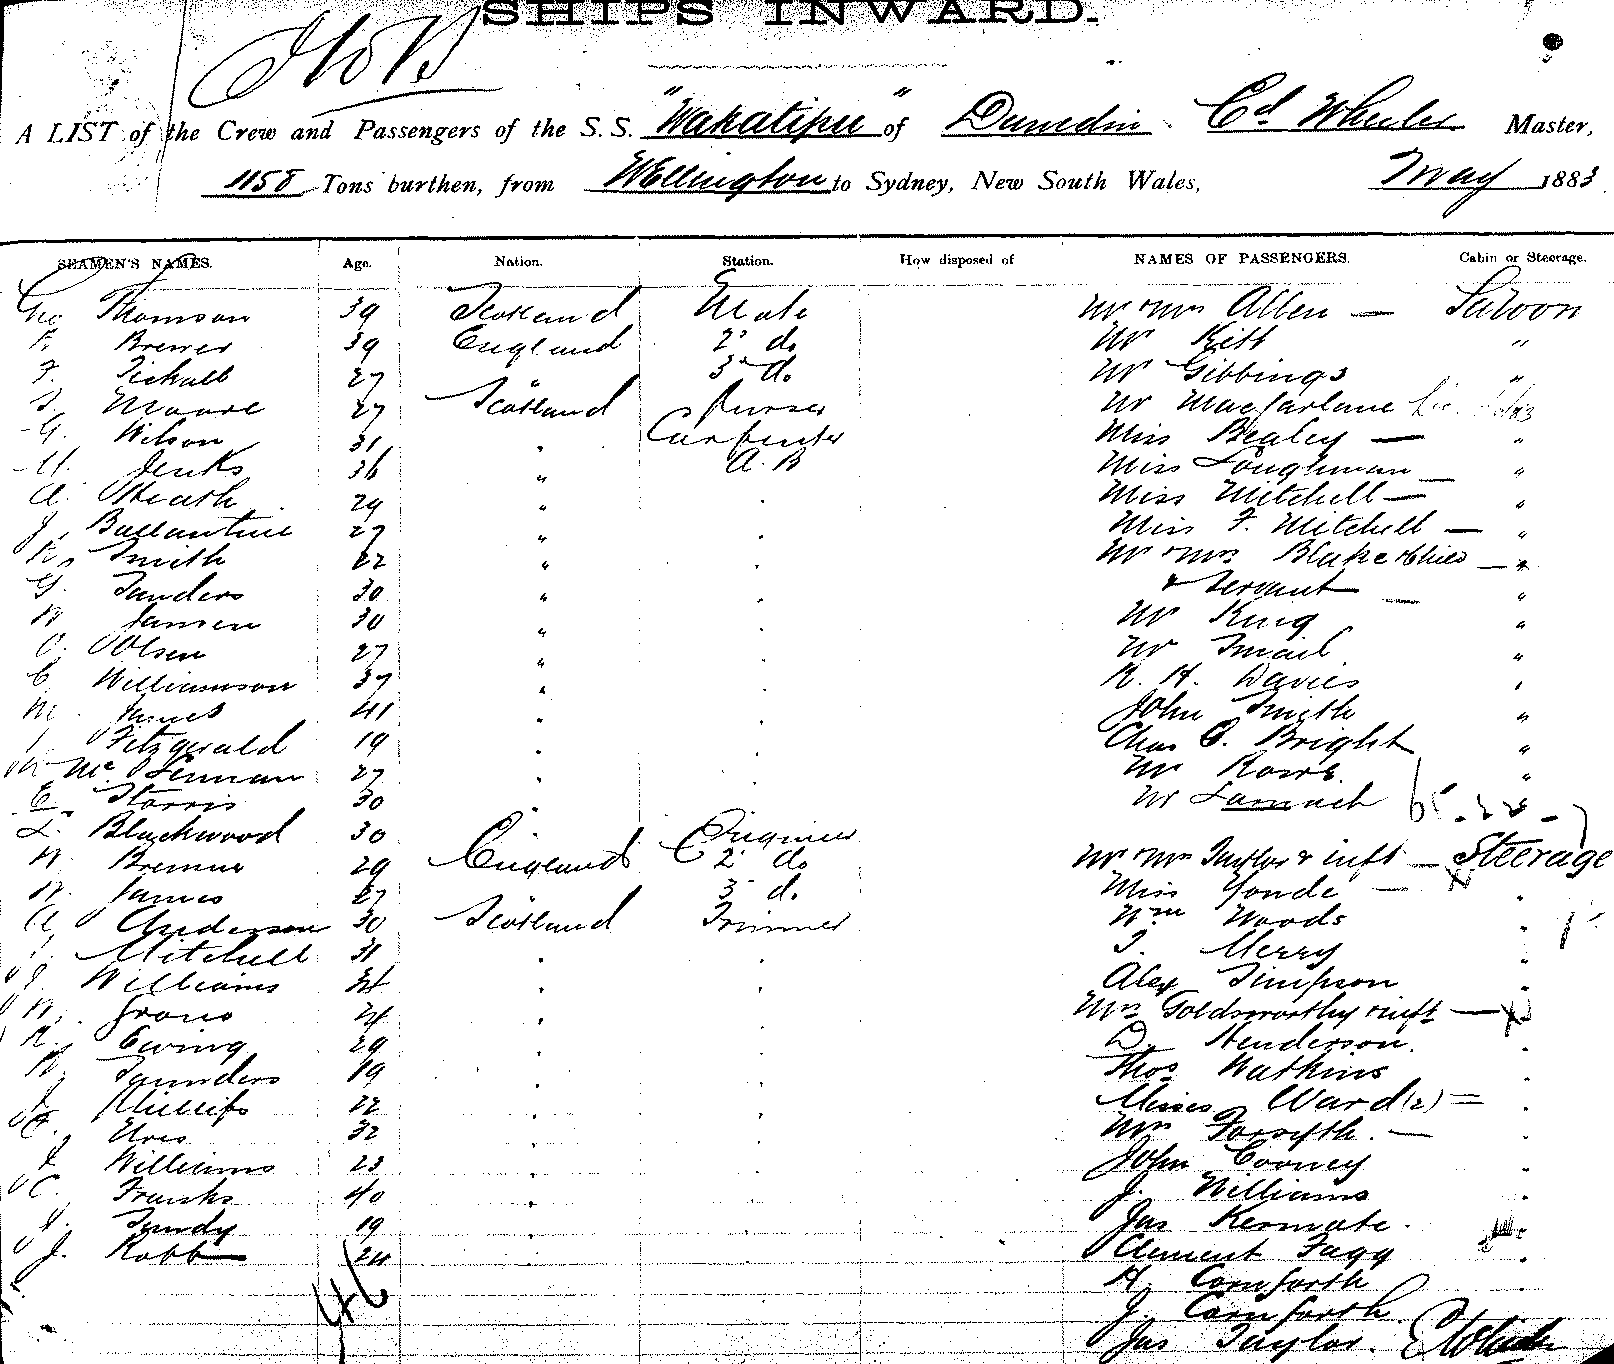 SHIPS INWARD.
A LIST of the Crew and Passengers of the S.S. "Wakatipu" of Dunedin Ed Wheeler Master,
1158 Tons burthen, from Wellington to Sydney, New South Wales, May 1883
SEAMEN'S NAMES. Age. Nation. Station. How disposed of NAMES OF PASSENGERS. Cabin or Steerage.
Geo Thomson 39 Scotland Mate Mr & Mrs Allen — Saloon
Brewer 39 England 2 do Mr Kitt "
F. Tickall 27 " 3 do Mr Gibbings "
Moore 27 Scotland Purser Mr Macfarlane
G. Wilson 31 " Carpenter Miss Bealey — "
Jenks 36 " A.B Miss Loughman "
A. Heath 29 " Miss Mitchell — "
J. Ballantine 27 " Miss F. Mitchell — "
R. Smith 22 " Mr & Mrs Blake & Child — "
G. Sanders 30 " & Servant — "
Jansen 30 " Mr King "
O. Olsen 27 " Mr Smail "
C. Williamson 37 " R. H. Davies "
M. James 41 " John Smith "
Fitzgerald 19 " Chas C. Bright "
27 " Mr Rowe "
E. Storris 30 " Mr Larnach
Blackwood 30 " Engineer
W. Bremner 29 England 2 do Mr & Mrs Taylor & inft — Steerage
W. James 27 3 do Miss Yonde —
A. Anderson 30 Scotland Trimmer Wm Woods
Mitchell 31 Merry
J. Williams 34 Alex Simpson
W. Grono 24 Mrs Goldsworthy & inft —
R. Ewing 29 D. Henderson.
W. Saunders 19 Thos Watkins
J. Phillips 22 Misses Ward (2) =
Ures 32 Mrs Forsyth. —
J. Williams 23 John Cooney
C. Franks 40 J. Williams
Sundy 19 Jas Kermate.
J. Robb 24 Clement Fagg
46 H. Cornforth
J. Cornforth
Jas Taylor. E Wheeler